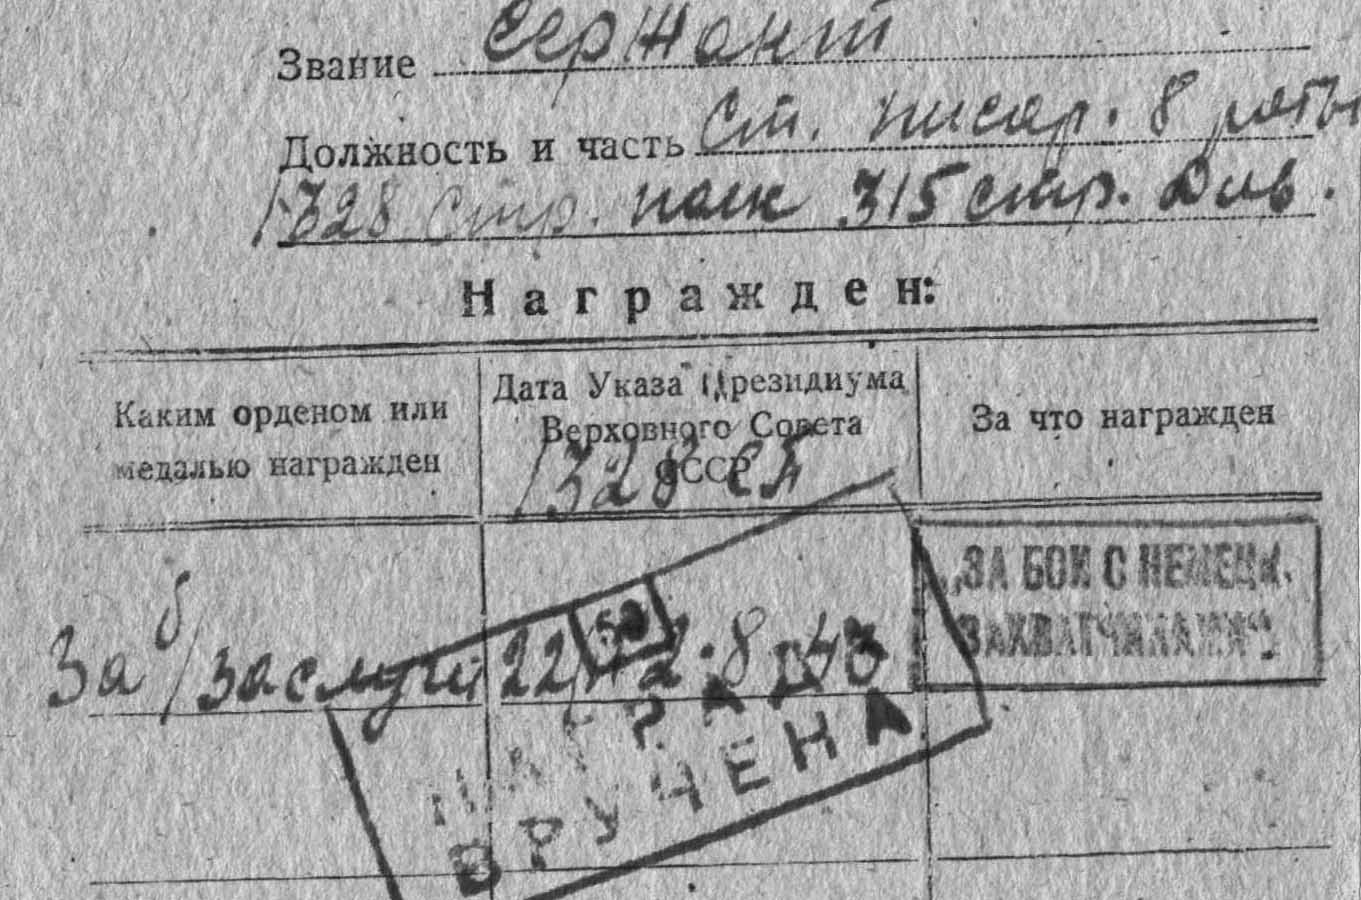 Звание Сержант
Должность и часть Ст. писар. 8 роты
1328 стр. полк 315 стр. Див.
Награжден:
Каким орденом или
медалью награжден
Дата Указа Президиума
Верховного Совета
СССР
1328 СП
За что награжден
За б/заслуги
22/ 2.8.43
„ЗА БОИ С НЕМЕЦК.
ЗАХВАТЧИКАМИ“.
НАГРАДА
ВРУЧЕНА